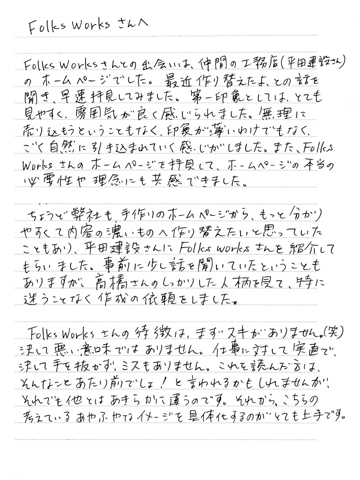 Folks Worksさんへ
Folks Worksさんとの出会いは、仲間の工務店(平田建設さん)
のホームページでした。最近作り替えたよ、との話を
聞き、早速拝見してみました。第一印象としては、とても
見やすく、雰囲気が良く感じられました。無理に
売り込もうということもなく、印象が薄いわけでもなく、
ごく自然に引き込まれていく感じがしました。また、Folks
Worksさんのホームページを拝見して、ホームページの本当の
必要性や理念にも共感できました。
ちょうど弊社も、手作りのホームページから、もっと分かり
やすくて内容の濃いものへ作り替えたいと思っていた
こともあり、平田建設さんにFolks Worksさんを紹介して
もらいました。事前に少し話を聞いていたということも
ありますが、高橋さんのしっかりした人柄を見て、特に
迷うことなく作成の依頼をしました。
Folks Worksさんの特徴は、まずスキがありません。(笑)
決して悪い意味ではありません。仕事に対して実直で、
決して手を抜かず、ミスもありません。これを読んだ方は、
そんなことあたり前でしょ！と言われるかもしれませんが、
それでも他とはあきらかに違うのです。それから、こちらの
考えているあやふやなイメージを具体化するのがとても上手です。